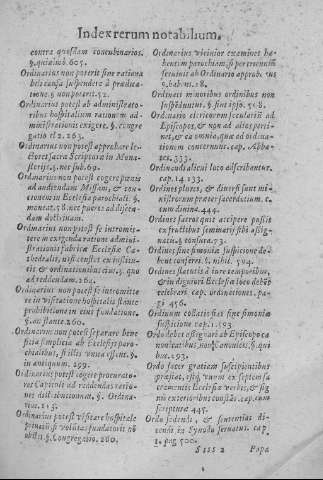 Index rerum notabilium.
contra quosdam concubinarios.
§. quia imò. 605.
Ordinarius non poterit sine rationa
beli causa suspendere à prædica-
tione. § non poterit. 52.
Ordinarius potest ab administrato-
ribus hospitalium rationem ad-
ministrationis exigere. §. congre
gatio 182. 263.
Ordinarius non potest approbare le-
ctores sacræ Scripturæ in Mona-
sterijs. §. nec sub. 69.
Ordinarius non potest cogere populū
ad audiendam Missam, & con-
cionem in Ecclesia parochiali. §.
moneat. 58. nec pueros ad discen-
dam doctrinam.
Ordinarius non potest se intromit-
tere in exigenda ratione admini-
strationis fabricæ Ecclesiæ Ca-
thedralis, nisi constet ex institu-
tis & ordinationibus eius. §. quo
ad reddendam. 262.
Ordinarius non potest se intromitte
re in visitatione hospitalis stante
prohibitione in eius fundatione.
§. an stante. 260.
Ordinarius non potest separare bene
ficia simplicia ab Ecclesijs paro-
chialibus, si illis unita essent. §.
in antiquum. 299.
Ordinarius potest cogere procurato-
res Capituli ad reddendas ratio-
nes distributionum. §. Ordina-
rius. 215.
Ordinarius potest visitare hospitale
si voluntas fundatoris nō
obstet. §. Congregatio. 260.
Ordinarius vicinior examinet ha-
bentem parochiam, si per
fuerit ab Ordinario approbatus
§. habens. 18.
Ordines minoribus ordinibus non
suspēduntur. §. sine ipso. 518.
Ordinario clericorum sæculariū ad
Episcopos, & non ad alios perti-
net, & ea omnia, quæ ad ordina-
tionem concernunt. cap. Abba-
tes. 333.
Ordinandi alicui loco adscribantur.
cap. 14. 133.
Ordines plures, & diversi sunt mi-
nistrorum præter sacerdotium. c.
cum dimina. 444.
Ordines sacros quis accipere possit
ex fructibus seminarij sibi assig-
natis. § consura. 73.
Ordines sine simoniæ suspicione de-
bent conferri. §. nihil. 504.
Ordines statutis à iure temporibus,
& in dignitate Ecclesiæ loco debēt
celebrari. cap. ordinationes. pa-
gi 456.
Ordinum collatio fiat sine simoniæ
suspicione cap. 1. 193.
Ordo debet assignari ab Episcopo ca
nonicatibus, non Canonicis. §. qui
bus. 193.
Ordo facit gratiam suscipientibus
præstat, estq; unum ex septem sa
cramentis Ecclesiæ verbis, & sig
nis exterioribus constās. cap. cum
scriptura 445.
Ordo sedendi, & sententias di-
cendi in Synodo servatur. cap.
1. pag. 500.
Ssss 2
Papa